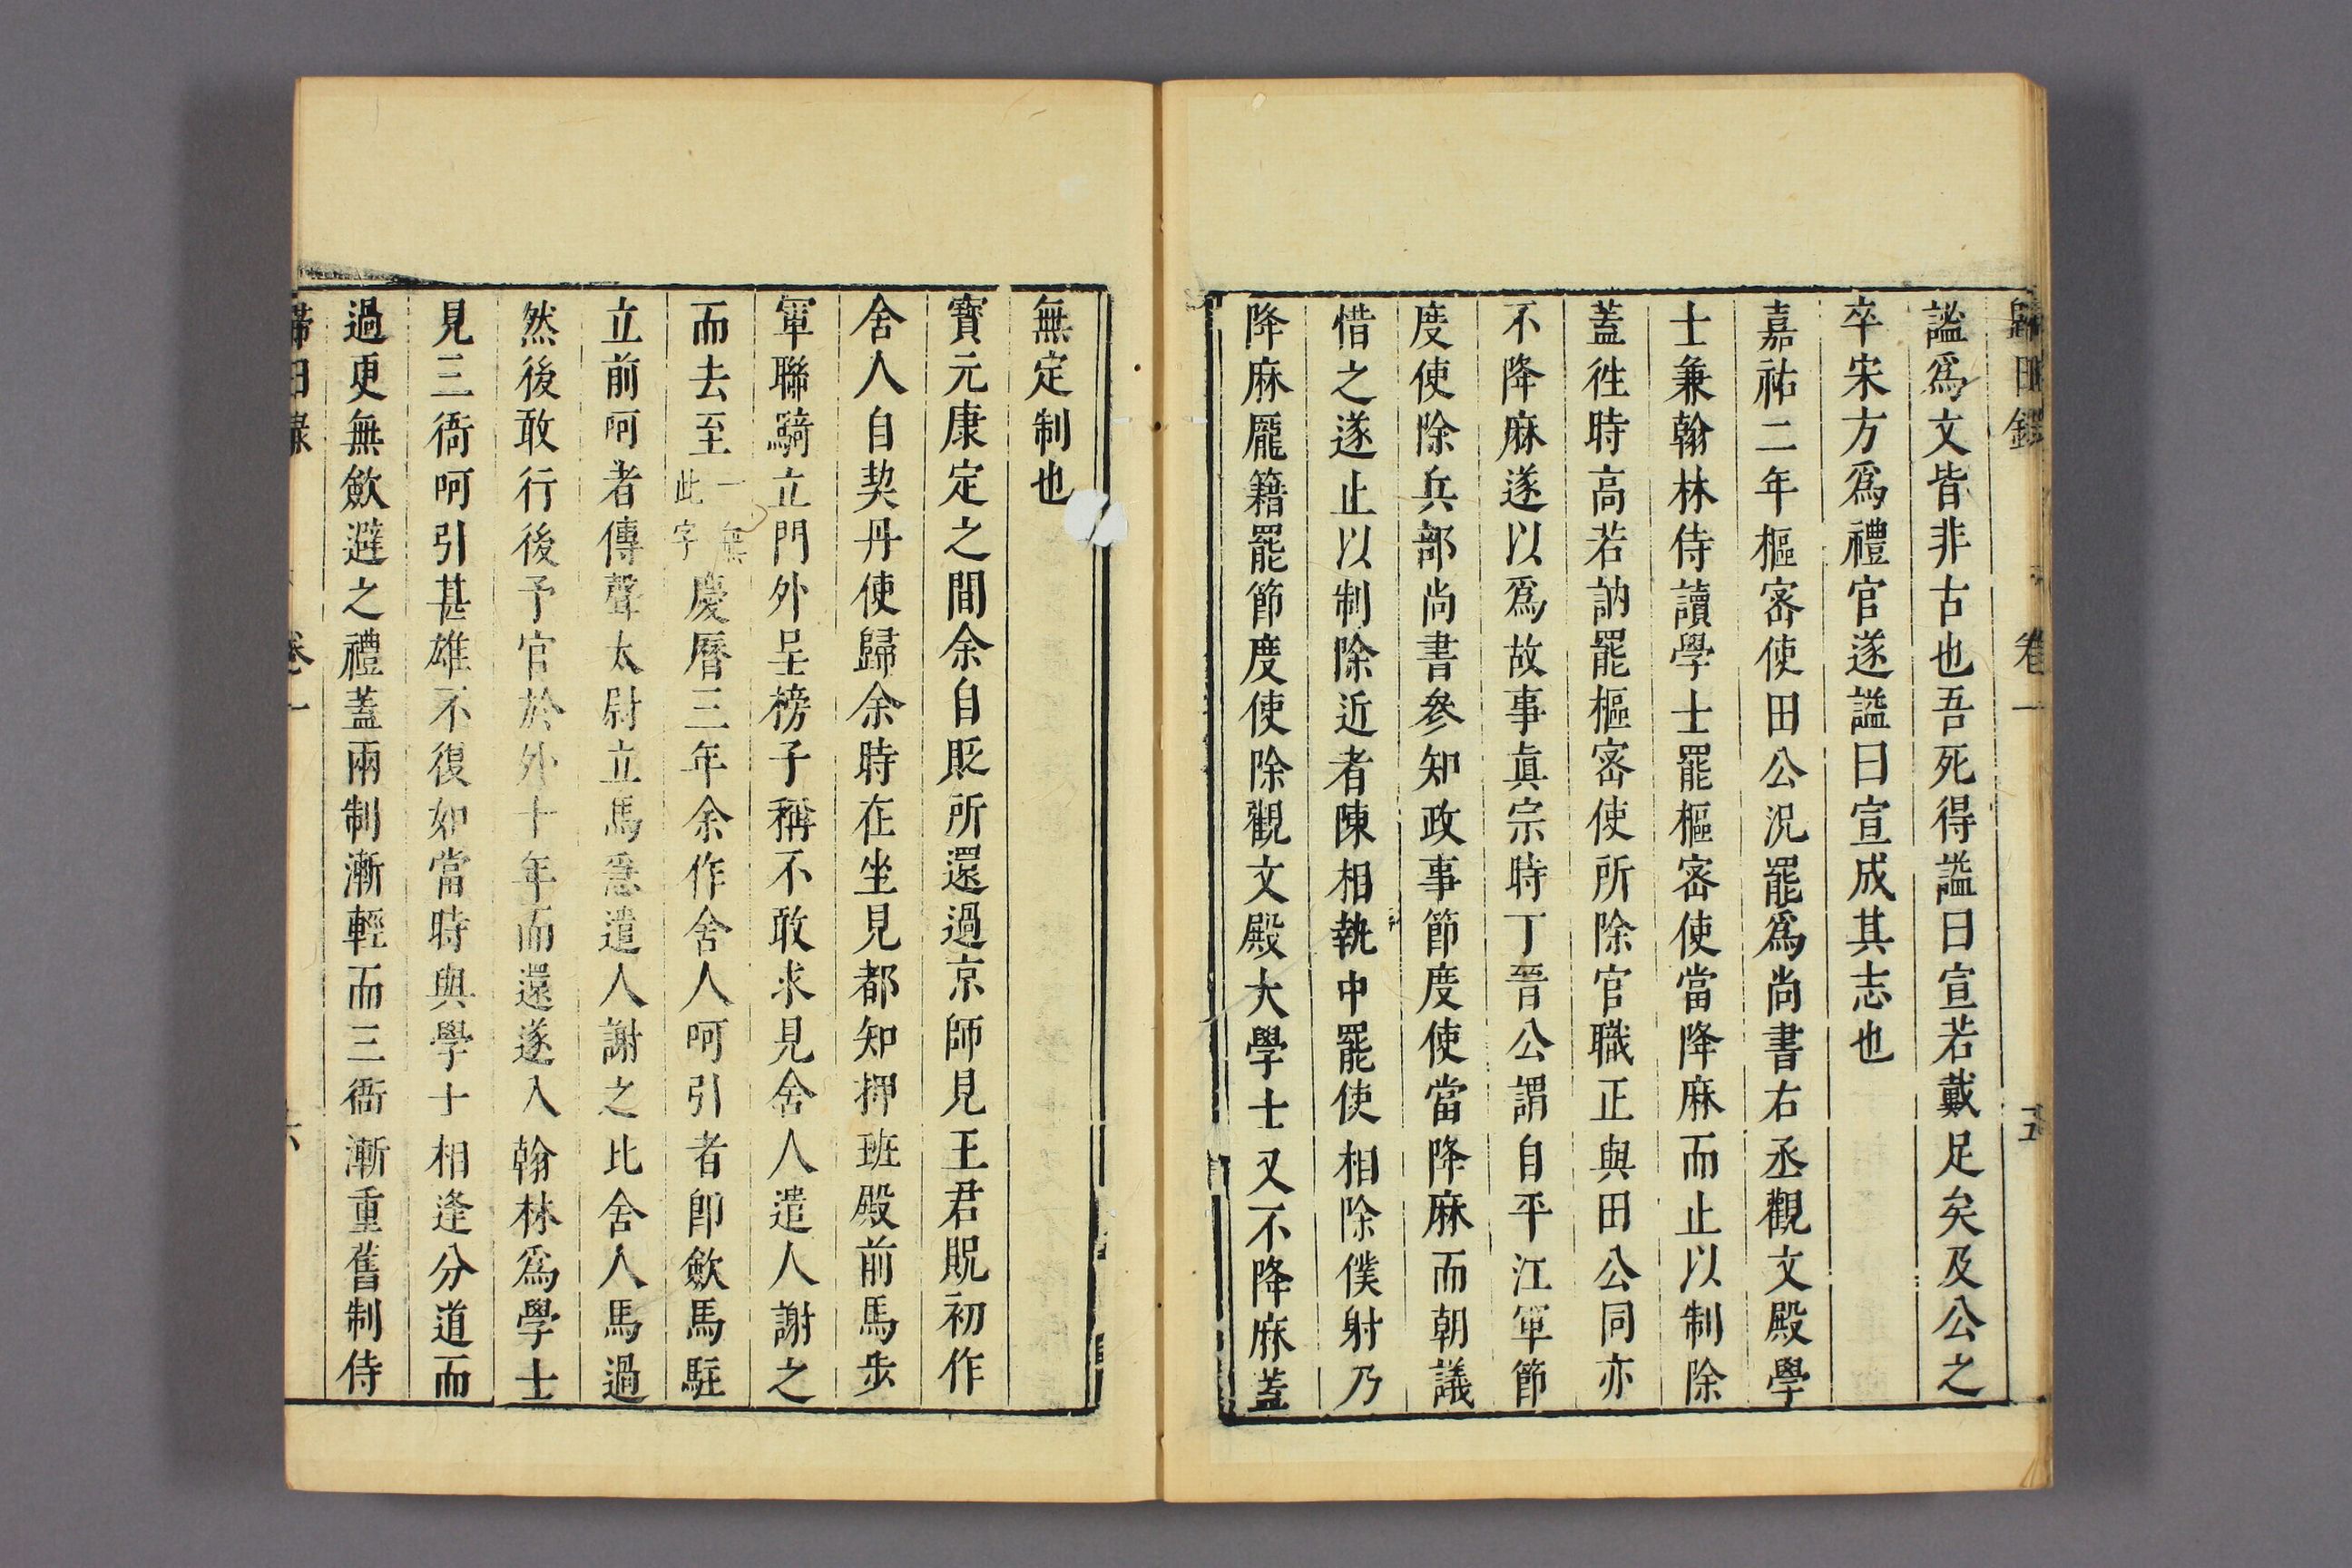 歸田錄 卷一 五
謚爲文皆非古也吾死得謚曰宣若戴足矣及公之
卒宋方爲禮官遂謚曰宣成其志也
嘉祐二年樞密使田公況罷爲尚書右丞觀文殿學
士兼翰林侍讀學士罷樞密使當降麻而止以制除
蓋徃時高若訥罷樞密使所除官職正與田公同亦
不降麻遂以爲故事眞宗時丁晉公謂自平江軍節
度使除兵部尚書參知政事節度使當降麻而朝議
惜之遂止以制除近者陳相執中罷使相除僕射乃
降麻龐籍罷節度使除觀文殿大學士又不降麻蓋
無定制也
寳元康定之間余自貶所還過京師見王君貺初作
舍人自契丹使歸余時在坐見都知押班殿前馬步
軍聯騎立門外呈榜子稱不敢求見舍人遣人謝之
而去至一無此字慶曆三年余作舍人呵引者卽歛馬駐
立前呵者傳聲太尉立馬急遣人謝之比舍人馬過
然後敢行後予官於外十年而還遂入翰林爲學士
見三衙呵引甚雄不復如當時與學士相逢分道而
過更無歛避之禮蓋兩制漸輕而三衙漸重舊制侍
歸田錄 卷一 六